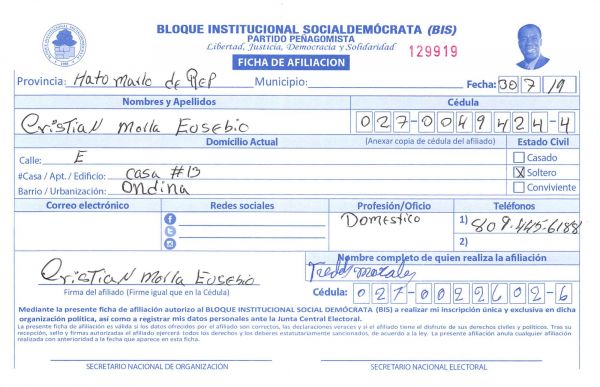 BLOQUE INSTITUCIONAL SOCIALDEMÓCRATA (BIS)
PARTIDO PEÑAGOMISTA
Libertad, Justicia, Democracia y Solidaridad
129919
FICHA DE AFILIACION
Provincia: Hato Mallo de REP Municipio: Fecha: 30 7 19
Nombres y Apellidos Cédula
Cristian Molla Eusebio 027-0049424-4
Domicilio Actual (Anexar copia de cédula del afiliado) Estado Civil
Calle: E Casado
#Casa / Apt. / Edificio: casa #13 X Soltero
Barrio / Urbanización: Ondina Conviviente
Correo electrónico Redes sociales Profesión/Oficio Teléfonos
Domestico 1) 809-445-6188
2)
Nombre completo de quien realiza la afiliación
Cristian Molla Eusebio Morales
Firma del afiliado (Firme igual que en la Cédula) Cédula: 027-0022602-6
Mediante la presente ficha de afiliación autorizo al BLOQUE INSTITUCIONAL SOCIAL DEMÓCRATA (BIS) a realizar mi inscripción única y exclusiva en dicha
organización política, así como a registrar mis datos personales ante la Junta Central Electoral.
La presente ficha de afiliación es válida si los datos ofrecidos por el afiliado son correctos, las declaraciones veraces y si el afiliado tiene el disfrute de sus derechos civiles y políticos. Tras su
recepción, sello y firmas autorizadas el afiliado ejercerá todos los derechos y los deberes estatutariamente sancionados, de acuerdo a la ley. La presente afiliación anula cualquier afiliación
realizada con anterioridad a la fecha que aparece en esta ficha.
SECRETARIO NACIONAL DE ORGANIZACIÓN SECRETARIO NACIONAL ELECTORAL